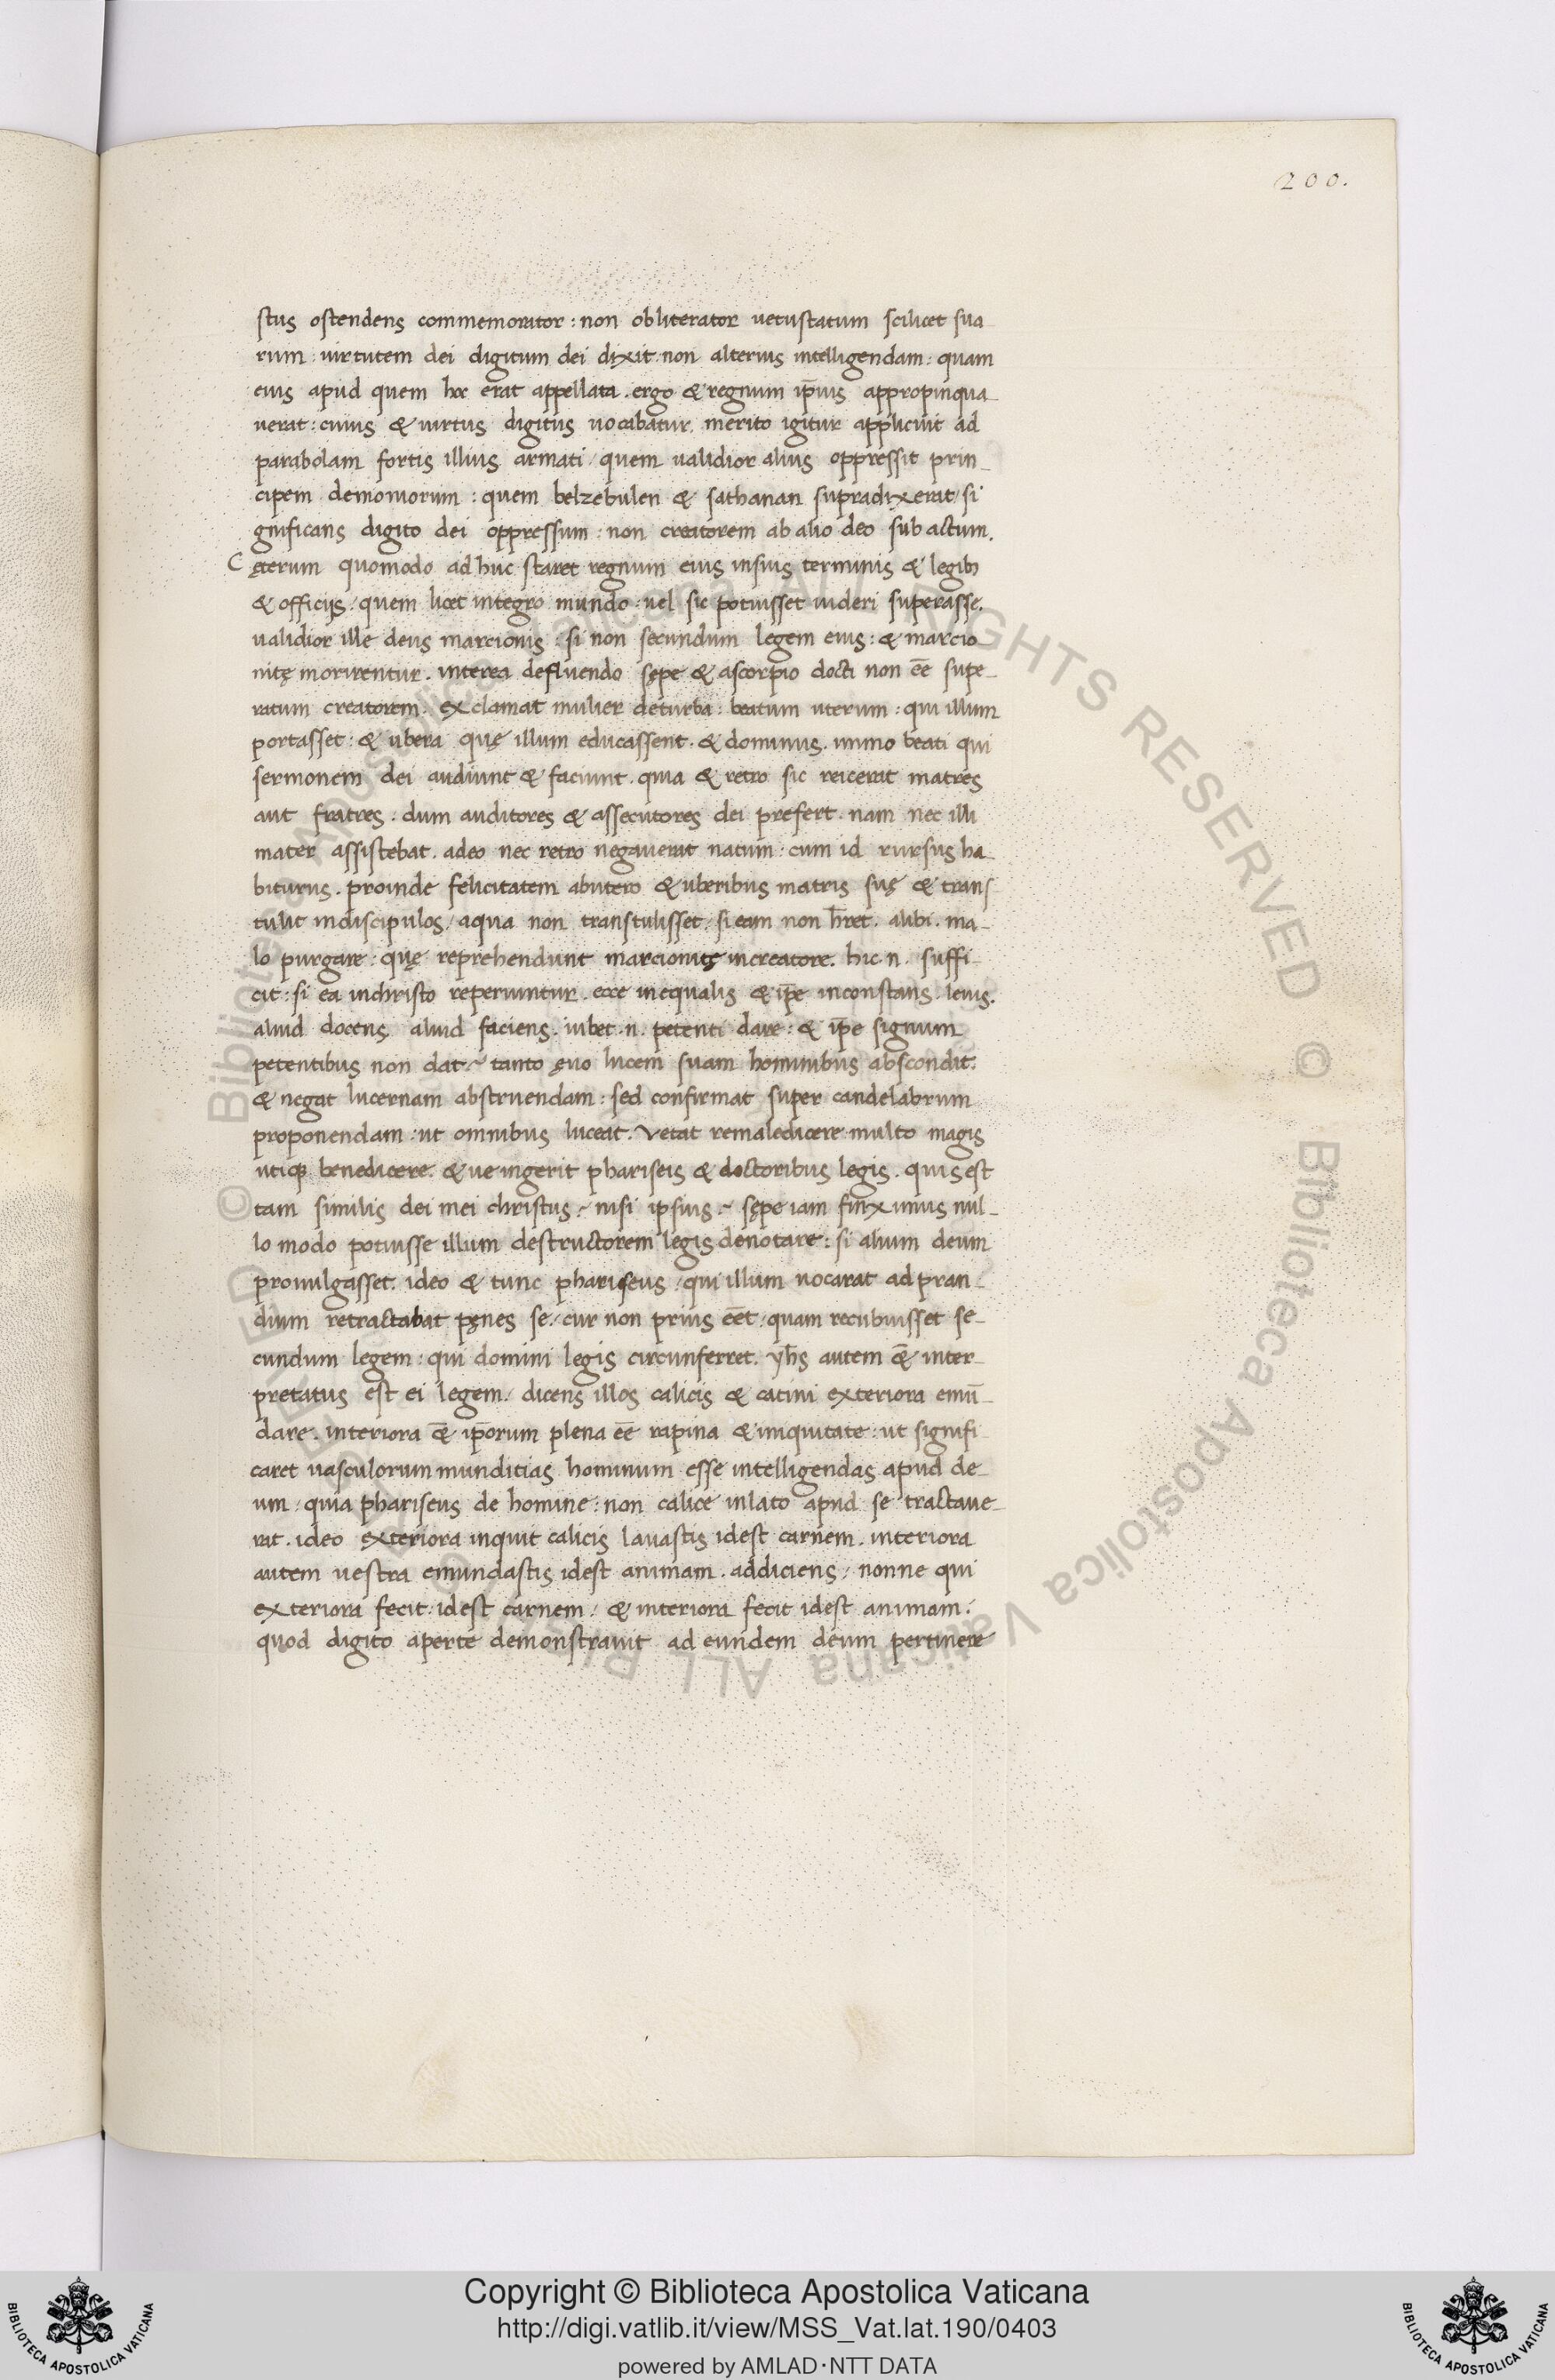 200.
stus ostendens commemorator: non obliterator uetustatum scilicet sua
rum: uirtutem dei digitum dei dixit: non alterius intelligendam: quam
eius apud quem hoc erat appellata. ergo & regnum ip̄ius appropinqua-
uerat: cuius & uirtus digitus uocabatur. merito igitur applicuit ad
parabolam fortis illius armati / quem ualidior alius oppressit prin-
cipem demoniorum: quem belzebulen & sathanan supradixerat / si
gnificans digito dei oppressum: non creatorem ab alio deo subactum.
Cęterum quomodo adhuc staret regnum eius insuis terminis & legibꝫ
& officijs / quem licet integro mundo: uel sic potuisset uideri superasse.
ualidior ille deus marcionis: si non secundum legem eius: & marcio
nitę morirentur. interea defluendo sępe & ascorpio docti non eē supe-
ratum creatorem. exclamat mulier deturba: beatum uterum: qui illum
portasset: & ubera quę illum educassent. & dominus. immo beati qui
sermonem dei audiunt & faciunt. quia & retro sic reicerat matres
aut fratres: dum auditores & assecutores dei prefert. nam nec illi
mater assistebat. adeo nec retro negauerat natum: cum id rursus ha-
biturus. proinde felicitatem abutero & uberibus matris suę & trans
tulit indiscipulos / aqua non transtulisset / si eam non h̄ret. alibi. ma-
lo purgare: quę reprehendunt marcionitę increatore. hic .n. suffi-
cit: si ea inchristo reperiuntur. ecce inequalis & ip̄e inconstans. leuis.
aliud docens aliud faciens. iubet .n. petenti dare: & ip̄e signum
petentibus non dat~ tanto ęuo lucem suam hominibus abscondit.
& negat lucernam abstruendam: sed confirmat super candelabrum
proponendam: ut omnibus luceat. Vetat remaledicere multo magis
utiqꝫ benedicere. & ue ingerit phariseis & doctoribus legis. quis est
tam similis dei mei christus~ nisi ipsius~ sępe iam finximus nul-
lo modo potuisse illum destructorem legis denotare: si alium deum
prouulgasset. ideo & tunc phariseus / qui illum uocarat ad pran-
dium retractabat pęnes se / cur non prius eēt / quam recubuisset se-
cundum legem: qui domini legis circunferret. yh̄s autem &̄ inter-
pretatus est ei legem / dicens illos calicis & catini exteriora emū-
dare. interiora &̄ ip̄orum plena eē rapina & iniquitate: ut signifi
caret uasculorum munditias hominum esse intelligendas apud de-
um / quia phariseus de homine: non calice inlato apud se tractaue-
rat. ideo exteriora inquit calicis lauastis idest carnem. interiora
autem uestra emundastis idest animam. addiciens / nonne qui
exteriora fecit idest carnem / & interiora fecit idest animam.
quod digito aperte demonstrauit ad eundem deum pertinere
Copyright © Biblioteca Apostolica Vaticana
http://digi.vatlib.it/view/MSS_Vat.lat.190/0403
powered by AMLAD·NTT DATA